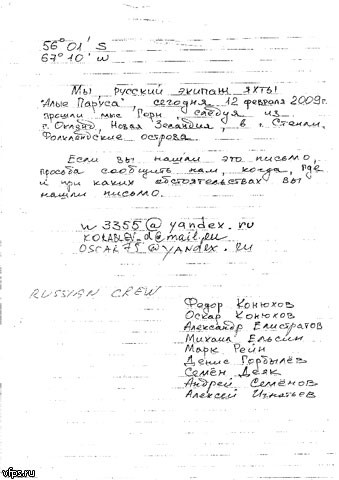 56° 01' S
67° 10' W
Мы, русский экипаж яхты
"Алые Паруса", сегодня 12 февраля 2009г.
прошли мыс Горн, следуя из
г. Окленд, Новая Зеландия, в г. Стенли.
Фолклендские острова.
Если вы нашли это письмо,
просьба сообщить нам, когда, где
и при каких обстоятельствах вы
нашли письмо.
w3355@yandex.ru
KORABLEV_d@mail.ru
OSCAR75@yandex.ru
RUSSIAN CREW
Федор Конюхов
Оскар Конюхов
Александр Елистратов
Михаил Ельсин
Марк Рейн
Денис Горбылёв
Семён Деяк
Андрей Семёнов
Алексей Игнатьев
vfps.ru